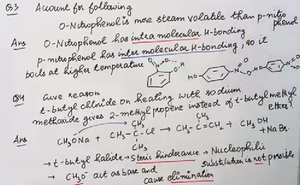 Q3 Account for following
O-Nitrophenol is more steam volatile than p-nitrophenol
Ans O-Nitrophenol has intramolecular H-bonding
p-nitrophenol has inter molecular H-bonding, so it
boils at higher temperature
Q4 Give reason
t-butyl chloride on heating with sodium
methoxide gives 2-methylpropene instead of t-butylmethyl
ether?
Ans
CH₃ CH₃
CH₃ONa + CH₃-C-Cl → CH₃-C=CH₂ + CH₃OH
CH₃ + NaBr
→ t-butyl halide → Steric hinderance → Nucleophilic
substitution is not possible
→ CH₃O⁻ act as base and
cause elimination